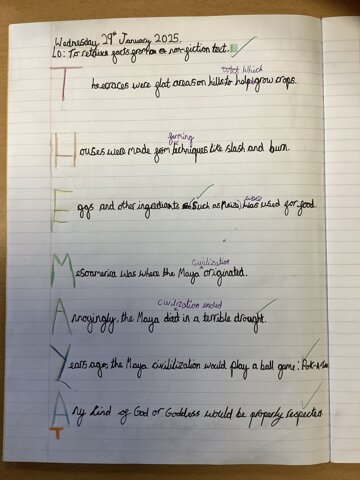 Wednesday 29th January 2025.
LO: To retrieve facts from a non-fiction text.
which
Terraces were flat areas on hills to help grow crops.
farming
Houses were made from techniques like slash and burn.
were
Eggs and other ingredients (Such as Maize) was used for food.
civilization
Mesoamerica was where the Maya originated.
civilization ended
Annoyingly, the Maya died in a terrible drought.
Years ago, the Maya civilization would play a ball game: Pok-A-Tok
Any kind of God or Goddess would be properly respected.
T